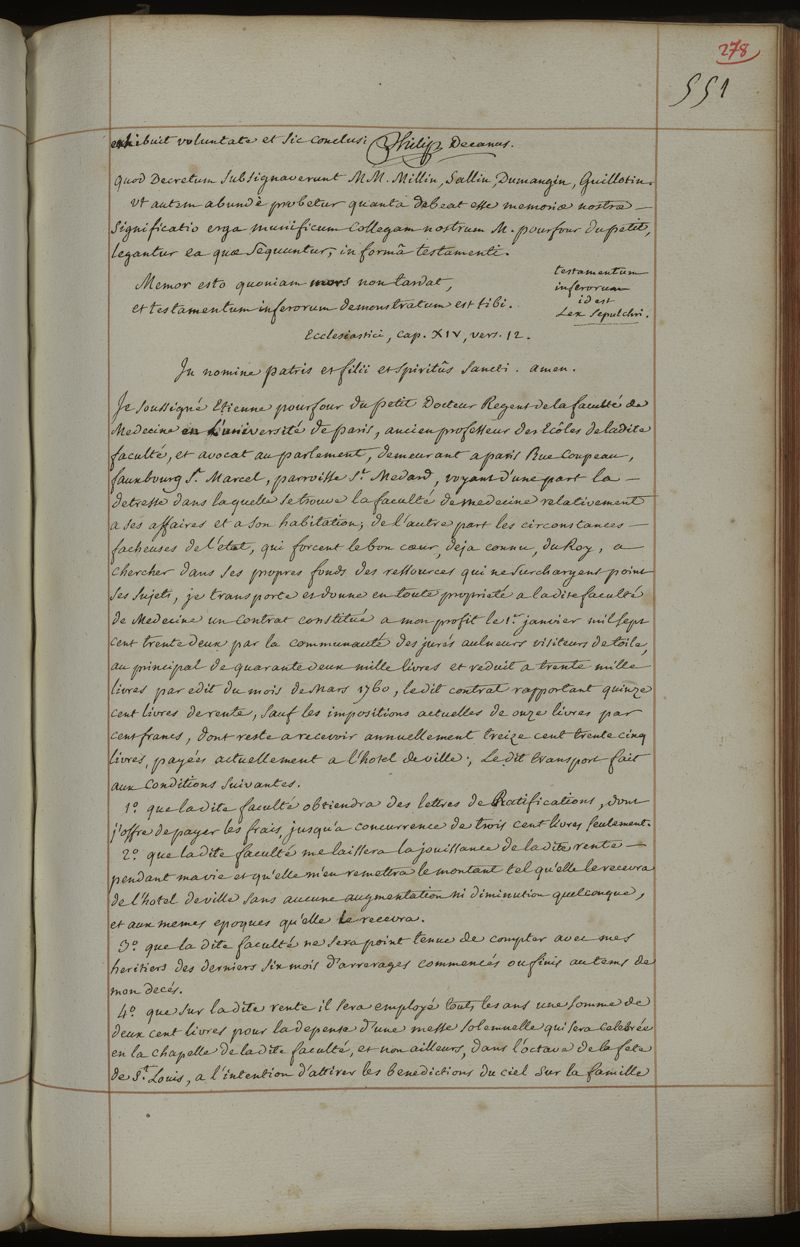 278
551
exhibuit voluntate et sic conclusi Philip Decanus.
Quod Decretum subsignaverunt MM. Millin, Sallin, Dumangin, Guillotin.
Ut autem abundè probetur quanta debeat esse memoriæ nostræ —
significatio erga munificum collegam nostrum M. pourfour du petit,
legantur ea quæ sequuntur, in formâ testamenti.
Memor esto quoniam mors non tardat,
et testamentum inferorum demonstratum est tibi.
testamentum
inferorum
id est
Lex sepulchri.
Ecclesiastici, cap. XIV, vers. 12.
In nomine patris et filii et spiritûs sancti. amen.
Je soussigné Etienne pourfour du petit Docteur Regent de la faculté de
Medecine en L'université de paris, ancien professeur des Ecoles de ladite
faculté, et avocat au parlement, demeurant a paris Rue Coupeau,
fauxbourg St. Marcel, parroisse St. Medard, voyant d'une part la —
detresse dans laquelle se trouve la faculté de medecine relativement
a ses affaires et a son habitation; de l'autre part les circonstances —
facheuses de l'etat, qui forcent le bon cœur, deja connu, du Roy, a
chercher dans ses propres fonds des ressources qui ne surchargent point
ses sujets, je transporte et donne en toute propriété a la dite faculté
de Medecine un contrat constitué a mon profit le 1er. janvier mil sept
cent trente deux par la communauté des jurés aulneurs visiteurs de toile,
au principal de quarante deux mille livres et reduit a trente mille
livres par edit du mois de Mars 1760, ledit contrat rapportant quinze
cent livres de rente, sauf les impositions actuelles de onze livres par
cent francs, dont reste a recevoir annuellement treize cent trente cinq
livres, payées actuellement a l'hotel de ville; Le dit transport fait
aux conditions suivantes.
1.° que la dite faculté obtiendra des lettres de Ratifications, dont
j'offre de payer les frais, jusqu'a concurrence de trois cent livres seulement.
2.° que la dite faculté me laissera la jouissance de la dite rente —
pendant ma vie et qu'elle m'en remettra le montant tel qu'elle le recevra
de l'hotel de ville sans aucune augmentation ni diminution quelconque,
et aux memes epoques qu'elle le recevra.
3.° que la dite faculté ne sera point tenue de compter avec mes
heritiers des derniers six mois d'arrerages commencés ou finis au tems de
mon decés.
4.° que sur la dite rente il sera employé tout les ans une somme de
deux cent livres pour la depense d'une messe solemnelle qui sera celebrée
en la chapelle de la dite faculté, et non ailleurs, dans l'octave de la fete
de St. Louis, a l'intention d'attirer les benedictions du ciel sur la famille